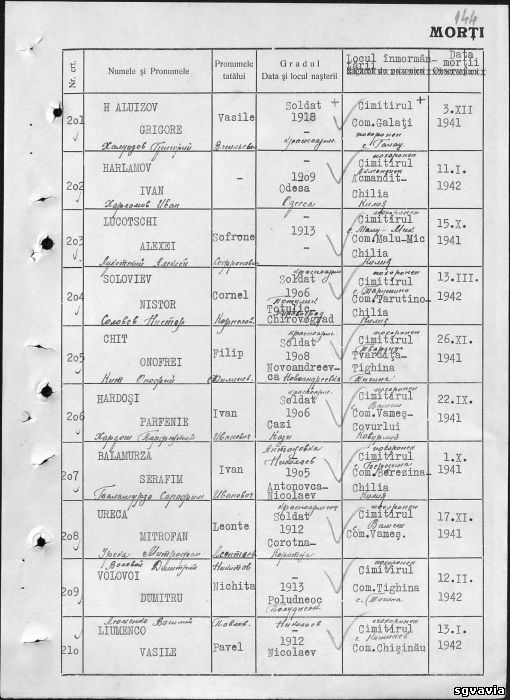 144
MORȚI
Nr. crt.
Numele și Pronumele
Pronumele tatălui
Gradul
Data și locul nașterii
Locul înmormân-
tării
Data
morții
201
H ALUIZOV
GRIGORE
Халуузов Григорий
Vasile
Васильевич
Soldat +
1918
-
красноарм.
Cimitirul +
Com.Galați
похоронен
с. Галац
3.XII
1941
202
HARLAMOV
IVAN
Харламов Иван
-
-
1909
Odesa
Одесса
Cimitirul
Acmandit-
Chilia
Килия
11.I.
1942
203
LUCOTSCHI
ALEXEI
Лукотский Алексей
Sofrone
Софронович
-
1913
-
похоронен
Cimitirul
с. Малу-Мик
Com.Malu-Mic
Chilia
Килия
15.X.
1941
204
SOLOVIEV
NISTOR
Соловьев Нистор
Cornel
красноарм.
Soldat
1906
Totulic
Chirovograd
похоронен
Cimitirul
с. Тарутино
Com.Tarutino
Chilia
Килия
13.III.
1942
205
CHIT
ONOFREI
Кит Онофрий
Filip
Филипп.
красноарм.
Soldat
1908
Novoandreev-
ca Новоандреевка
похоронен
Cimitirul
Tvardața-
Tighina
Тигина
26.XI.
1941
206
HARDOȘI
PARFENIE
Хардош Парфений
Ivan
Иванович
красноарм.
Soldat
1906
Cazi
Кази
похоронен
Cimitirul
Вамеш
Com.Vameș-
Covurlui
Ковурлуй
22.IX.
1941
207
BALAMURZA
SERAFIM
Баламурза Серафим
Ivan
Иванович
Антоновка
Николаев
1905
Antonovca-
Nicolaev
похоронен
Cimitirul
с. Березина
Com.Berezina-
Chilia
Килия
1.X.
1941
208
URECA
MITROFAN
Урека Митрофан
Leonte
Леонтьев
красноармеец
Soldat
1912
Corotna-
Коротна
похоронен
Cimitirul
Вамеш
Com.Vameș.
17.XI.
1941
209
Воловой Дмитрий
VOLOVOI
DUMITRU
Никитов
Nichita
-
1913
Poludneoc
Полуднеок
похоронен
Cimitirul
Com.Tighina
с. Тигина
12.II.
1942
210
Люменко Василий
LIUMENCO
VASILE
Павлов.
Pavel
Николаев
-
1912
Nicolaev
похоронен
Cimitirul
г. Кишинев
Com.Chișinău
13.I.
1942
sgvavia